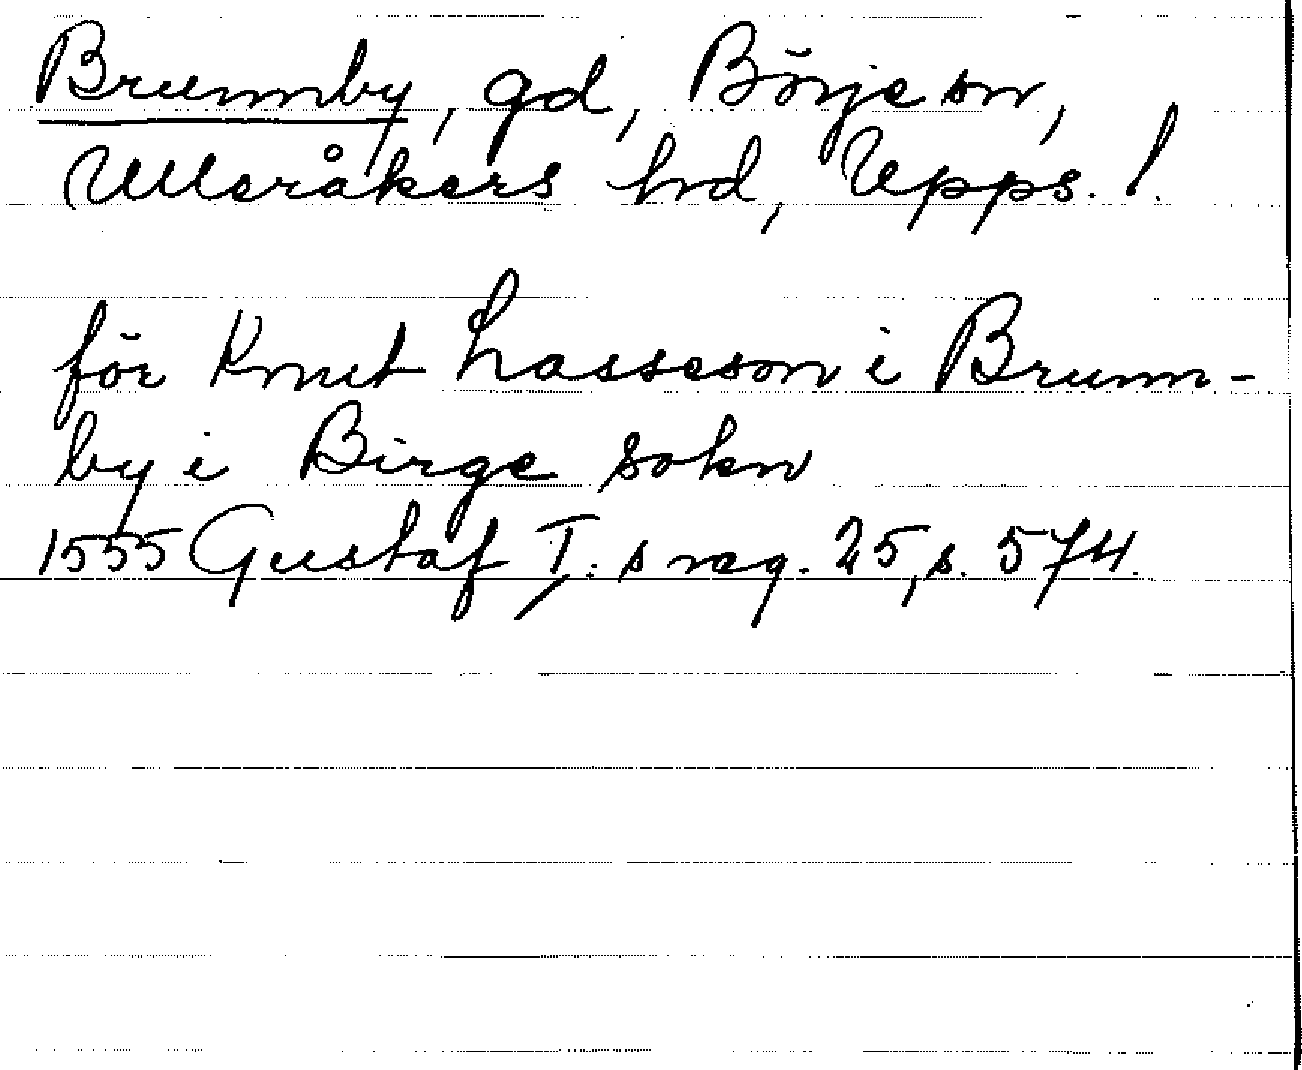 Brumby, gd, Börje sn,
Ulleråkers hd, Upps. l.
för Knut Lasseson i Brum-
by i Birge sokn
1555 Gustaf I:s reg. 25, s. 574.